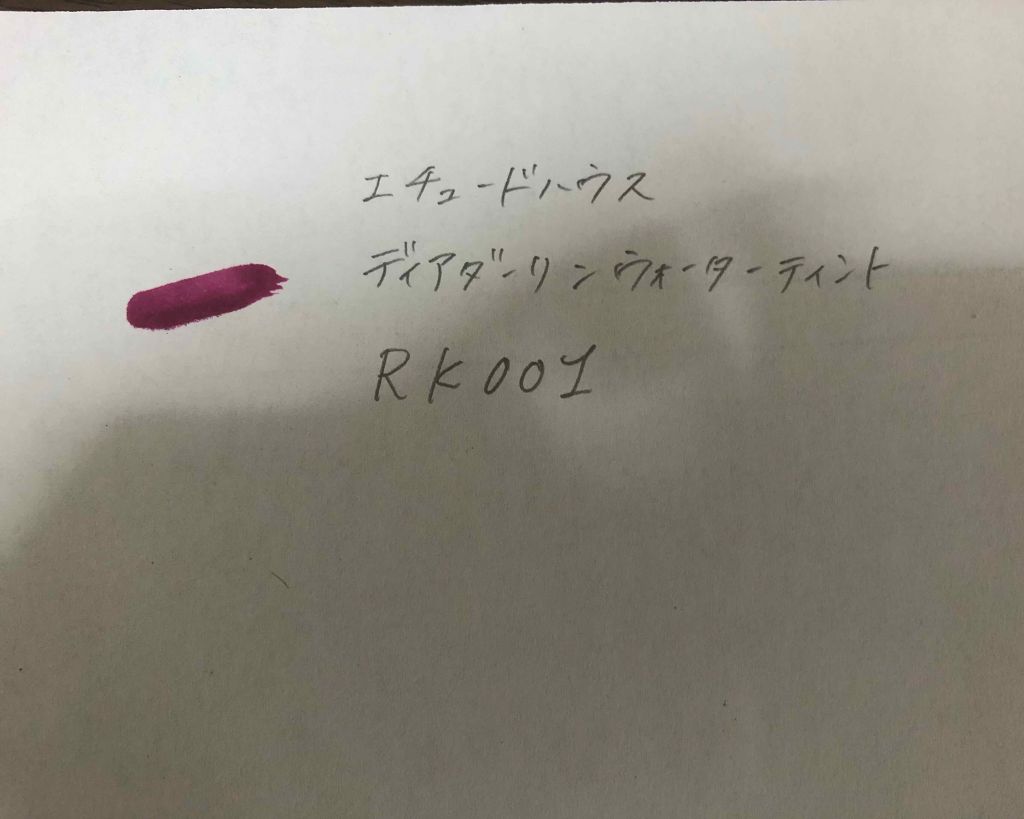 エチュードハウス
ディアダーリンウォーターティント
RK001